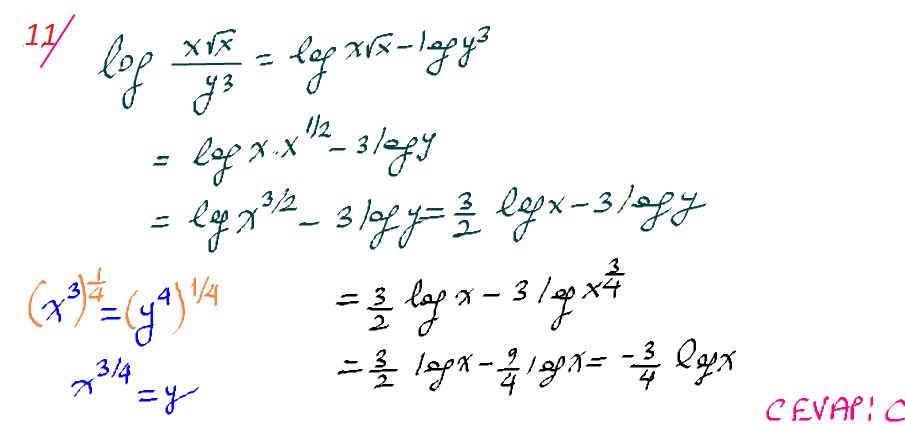 11/
log x√x/y³ = log x√x - log y³
= log x.x^1/2 - 3 log y
= log x^3/2 - 3 log y = 3/2 log x - 3 log y
(x³)^1/4 = (y⁴)^1/4
x^3/4 = y
= 3/2 log x - 3 log x^3/4
= 3/2 log x - 9/4 log x = -3/4 log x
CEVAP: C